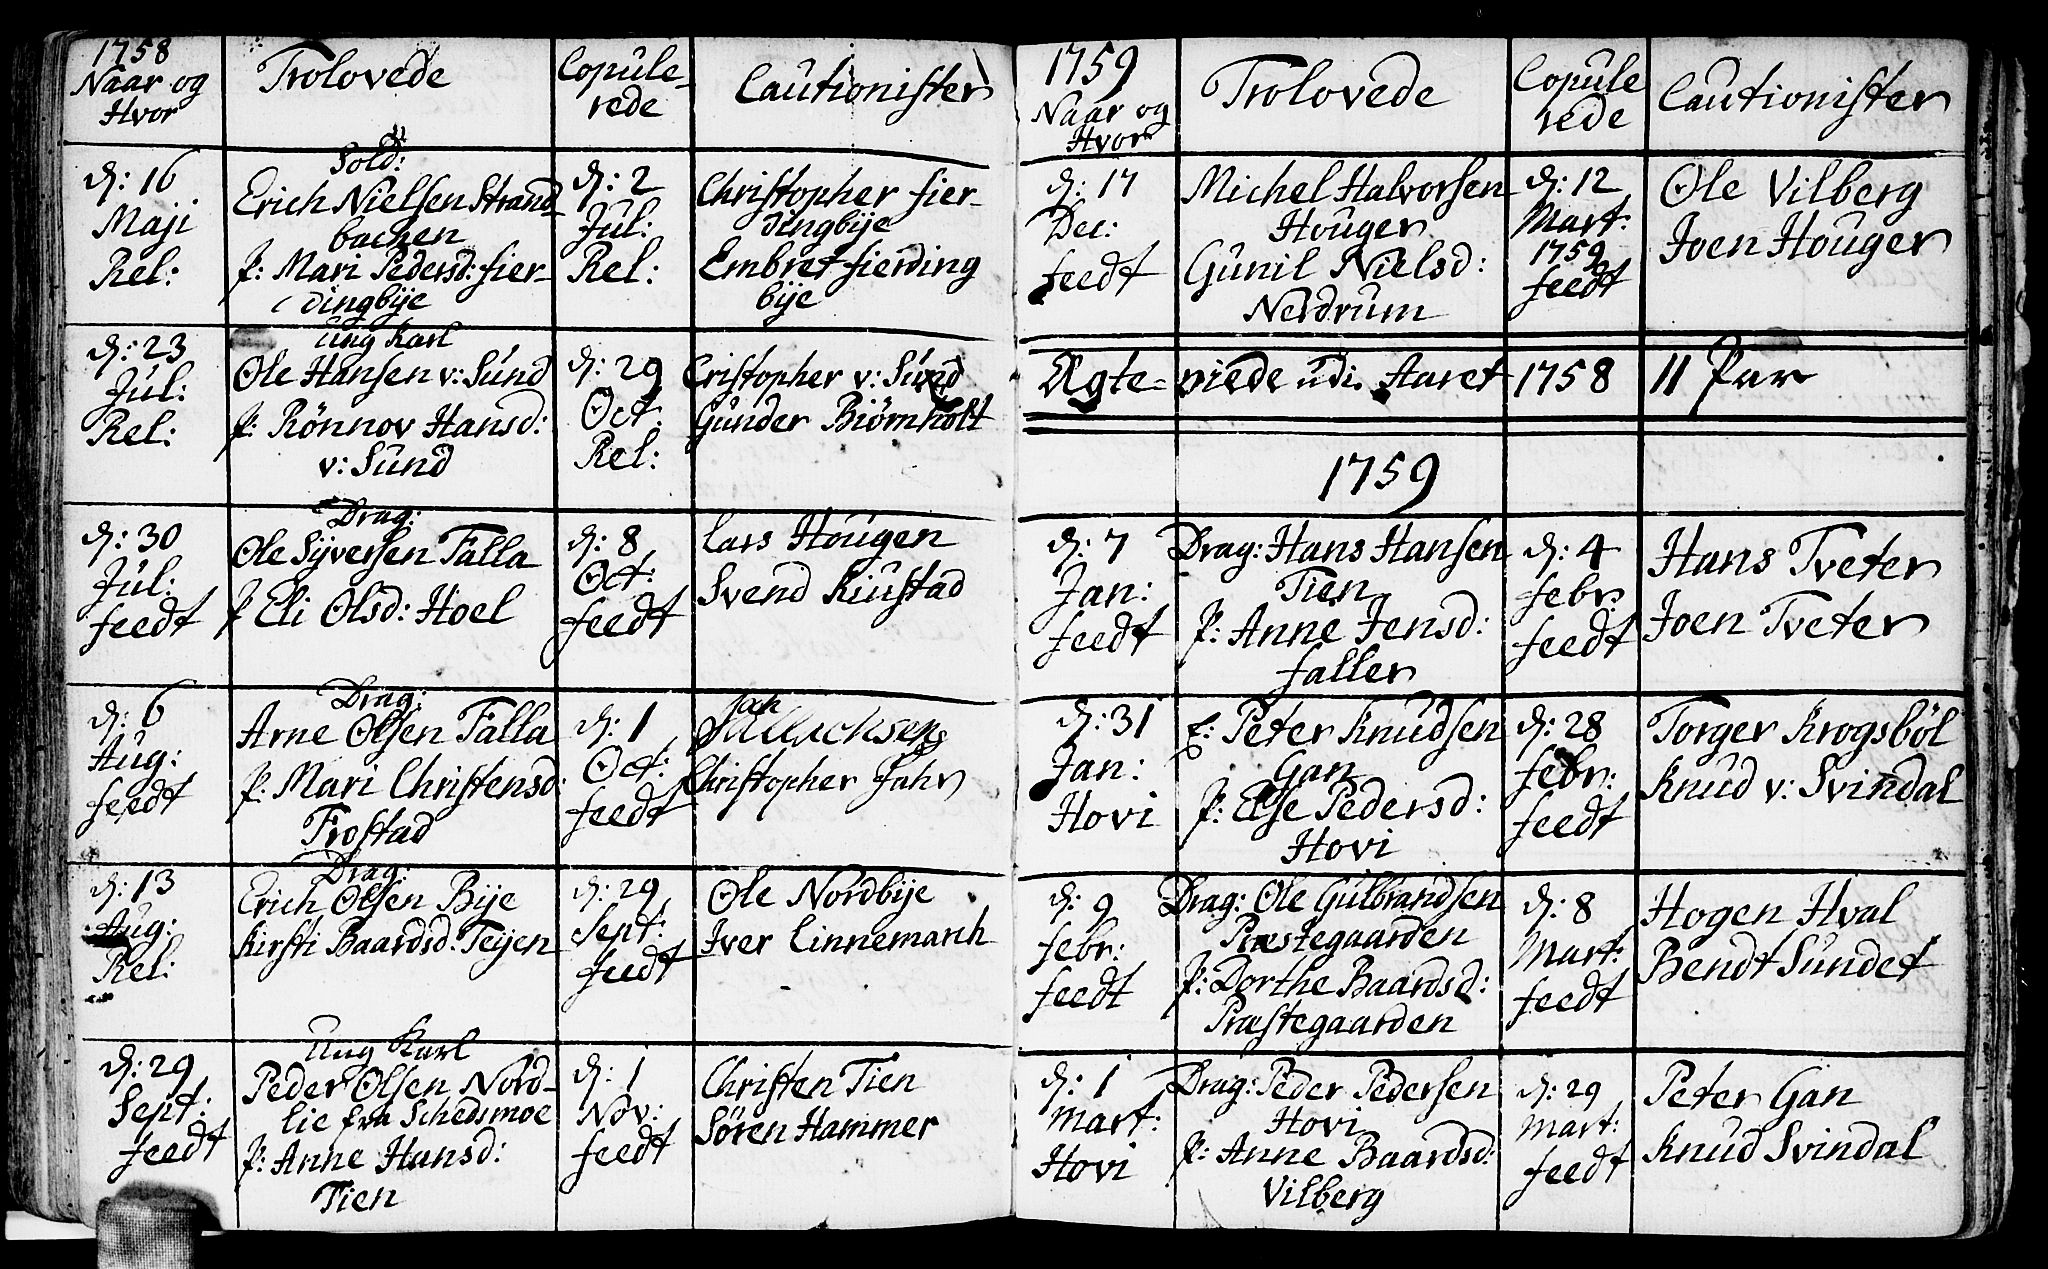 1758
Naar og
Hvor
Trolovede
Copule-
rede
Cautionister
d: 16
Maji
Rel:
Sold:
Erich Nielsen Strand-
bachen
P: Mari Pedersd: fier-
dingbije
d: 2
Jul:
Rel:
Christopher fier-
dingbije
Embret fierding
bije
d: 23
Jul:
Rel:
Ung Karl
Ole Hansen v: Sund
P: Rönnov Hansd:
v: Sund
d: 29
Oct:
Rel:
Cristopher v: Sund
Gunder Biörnholt
d: 30
Jul:
feedt
Drag:
Ole Syversen Falla
P Eli Olsd: Hoel
d: 8
Oct:
feedt
Lars Hougen
Svend Kiustad
d: 6
Aug:
feedt
Drag:
Arne Olsen Falla
P: Mari Christensd:
Frostad
d: 1
Oct:
feedt
Christopher Jahr
d: 13
Aug:
Rel:
Drag:
Erich Olsen Bije
Kirsti Baardsd: Teijen
d: 29
Sept:
feedt
Ole Nordbije
Iver Linnemarch
d: 29
Sept:
feedt
Ung Karl
Peder Olsen Nord-
lie fra Schedsmoe
P: Anne Hansd:
Tien
d: 1
Nov:
feedt
Christen Tien
Sören Hammer
1759
Naar og
Hvor
Trolovede
Copule
rede
Cautionister
d: 17
Dec:
feedt
Michel Halvorsen
Houger
Gunil Nielsd:
Nerdrum
d: 12
Mart:
1759
feedt
Ole Vilberg
Joen Houger
Ægte-viede udi Aaret 1758 11 Par
1759
d: 7
Jan:
feedt
Drag: Hans Hansen
Tien
P: Anne Jensd:
faller
d: 4
febr:
feedt
Hans Tveter
Joen Tveter
d: 31
Jan:
Hovi
E: Peter Knudsen
Gan
P: Else Pedersd:
Hovi
d: 28
febr:
feedt
Torger Krogsböl
Knud v: Svindal
d: 9
febr:
feedt
Drag: Ole Gulbrandsen
Præstegaarden
P: Dorthe Baardsd:
Præstegaarden
d: 8
Mart:
feedt
Hogen Hval
Bendt Sundet
d: 1
Mart:
Hovi
Drag: Peder Pedersen
Hovi
P: Anne Baardsd:
Vilberg
d: 29
Mart:
feedt
Peter Gan
Knud Svindal